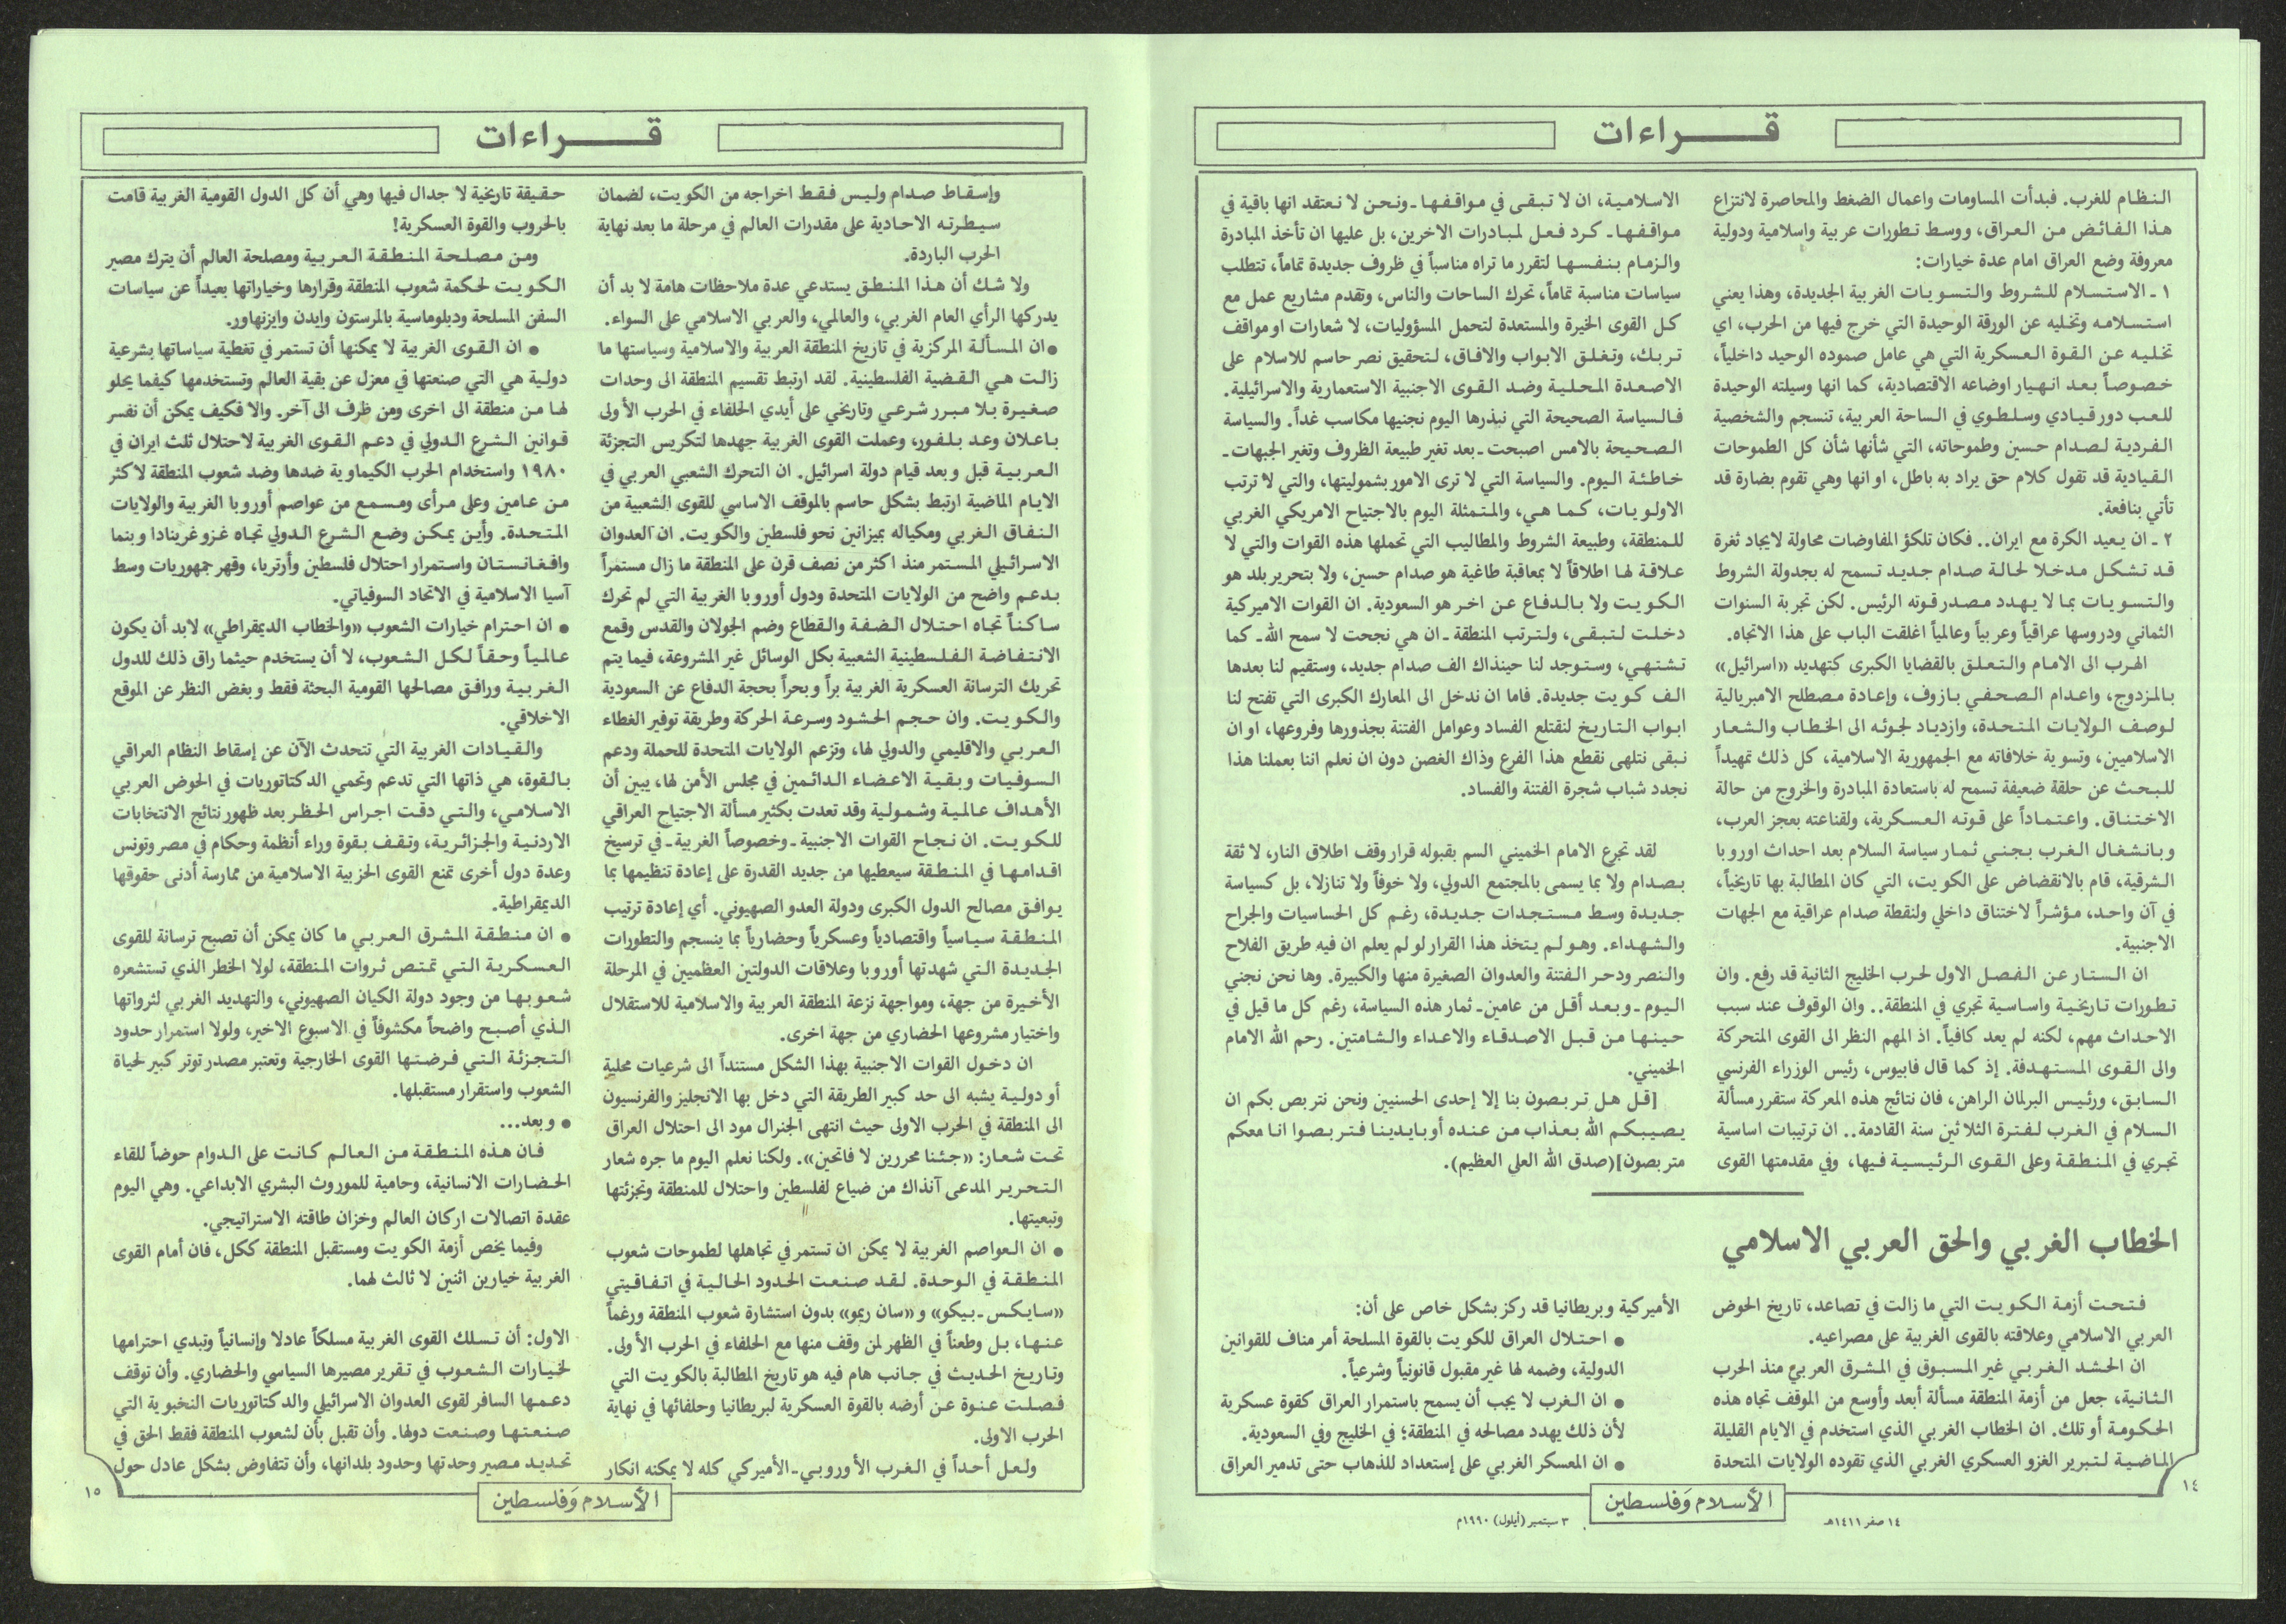 قـــــراءات
النظام للغرب. فبدأت المساومات واعمال الضغط والمحاصرة لانتزاع
هذا الفائض من العراق، ووسط تطورات عربية واسلامية ودولية
معروفة وضع العراق امام عدة خيارات:
١ ـ الاستسلام للشروط والتسويات الغربية الجديدة، وهذا يعني
استسلامه وتخليه عن الورقة الوحيدة التي خرج فيها من الحرب، اي
تخليه عن القوة العسكرية التي هي عامل صموده الوحيد داخلياً،
خصوصاً بعد انهيار اوضاعه الاقتصادية، كما انها وسيلته الوحيدة
للعب دور قيادي وسلطوي في الساحة العربية، تنسجم والشخصية
الفردية لصدام حسين وطموحاته، التي شأنها شأن كل الطموحات
القيادية قد تقول كلام حق يراد به باطل، او انها وهي تقوم بضارة قد
تأتي بنافعة.
٢ ـ ان يعيد الكرة مع ايران.. فكان تلكؤ المفاوضات محاولة لايجاد ثغرة
قد تشكل مدخلا لحالة صدام جديد تسمح له بجدولة الشروط
والتسويات بما لا يهدد مصدر قوته الرئيس. لكن تجربة السنوات
الثماني ودروسها عراقياً وعربياً وعالمياً اغلقت الباب على هذا الاتجاه.
الهرب الى الامام والتعلق بالقضايا الكبرى كتهديد «اسرائيل»
بالمزدوج، واعدام الصحفي بازوف، وإعادة مصطلح الامبريالية
لوصف الولايات المتحدة، وازدياد لجوئه الى الخطاب والشعار
الاسلاميين، وتسوية خلافاته مع الجمهورية الاسلامية، كل ذلك تمهيداً
للبحث عن حلقة ضعيفة تسمح له باستعادة المبادرة والخروج من حالة
الاختناق. واعتماداً على قوته العسكرية، ولقناعته بعجز العرب،
وبانشغال الغرب بجني ثمار سياسة السلام بعد احداث اوروبا
الشرقية، قام بالانقضاض على الكويت، التي كان المطالبة بها تاريخياً،
في آن واحد، مؤشراً لاختناق داخلي ولنقطة صدام عراقية مع الجهات
الاجنبية.
ان الستار عن الفصل الاول لحرب الخليج الثانية قد رفع. وان
تطورات تاريخية واساسية تجري في المنطقة.. وان الوقوف عند سبب
الاحداث مهم، لكنه لم يعد كافياً. اذ المهم النظر الى القوى المتحركة
والى القوى المستهدفة. إذ كما قال فابيوس، رئيس الوزراء الفرنسي
السابق، ورئيس البرلمان الراهن، فان نتائج هذه المعركة ستقرر مسألة
السلام في الغرب لفترة الثلاثين سنة القادمة.. ان ترتيبات اساسية
تجري في المنطقة وعلى القوى الرئيسية فيها، وفي مقدمتها القوى
الاسلامية، ان لا تبقى في مواقفها ـ ونحن لا نعتقد انها باقية في
مواقفها ـ كرد فعل لمبادرات الاخرين، بل عليها ان تأخذ المبادرة
والزمام بنفسها لتقرر ما تراه مناسباً في ظروف جديدة تماماً، تتطلب
سياسات مناسبة تماماً، تحرك الساحات والناس، وتقدم مشاريع عمل مع
كل القوى الخيرة والمستعدة لتحمل المسؤوليات، لا شعارات او مواقف
تربك، وتغلق الابواب والافاق، لتحقيق نصر حاسم للاسلام على
الاصعدة المحلية وضد القوى الاجنبية الاستعمارية والاسرائيلية.
فالسياسة الصحيحة التي نبذرها اليوم نجنيها مكاسب غداً. والسياسة
الصحيحة بالامس اصبحت ـ بعد تغير طبيعة الظروف وتغير الجبهات ـ
خاطئة اليوم. والسياسة التي لا ترى الامور بشموليتها، والتي لا ترتب
الاولويات، كما هي، والمتمثلة اليوم بالاجتياح الامريكي الغربي
للمنطقة، وطبيعة الشروط والمطاليب التي تحملها هذه القوات والتي لا
علاقة لها اطلاقاً لا بمعاقبة طاغية هو صدام حسين، ولا بتحرير بلد هو
الكويت ولا بالدفاع عن اخر هو السعودية. ان القوات الاميركية
دخلت لتبقى، ولترتب المنطقة ـ ان هي نجحت لا سمح الله ـ كما
تشتهي، وستوجد لنا حينذاك الف صدام جديد، وستقيم لنا بعدها
الف كويت جديدة. فاما ان ندخل الى المعارك الكبرى التي تفتح لنا
ابواب التاريخ لنقتلع الفساد وعوامل الفتنة بجذورها وفروعها، او ان
نبقى نتلهى نقطع هذا الفرع وذاك الغصن دون ان نعلم اننا بعملنا هذا
نجدد شباب شجرة الفتنة والفساد.
لقد تجرع الامام الخميني السم بقبوله قرار وقف اطلاق النار، لا ثقة
بصدام ولا بما يسمى بالمجتمع الدولي، ولا خوفاً ولا تنازلا، بل كسياسة
جديدة وسط مستجدات جديدة، رغم كل الحساسيات والجراح
والشهداء. وهو لم يتخذ هذا القرار لو لم يعلم ان فيه طريق الفلاح
والنصر ودحر الفتنة والعدوان الصغيرة منها والكبيرة. وها نحن نجني
اليوم ـ وبعد أقل من عامين ـ ثمار هذه السياسة، رغم كل ما قيل في
حينها من قبل الاصدقاء والاعداء والشامتين. رحم الله الامام
الخميني.
[قل هل تربصون بنا إلا إحدى الحسنيين ونحن نتربص بكم ان
يصيبكم الله بعذاب من عنده أو بايدينا فتربصوا انا معكم
متربصون](صدق الله العلي العظيم).
الخطاب الغربي والحق العربي الاسلامي
فتحت أزمة الكويت التي ما زالت في تصاعد، تاريخ الحوض
العربي الاسلامي وعلاقته بالقوى الغربية على مصراعيه.
ان الحشد الغربي غير المسبوق في المشرق العربي منذ الحرب
الثانية، جعل من أزمة المنطقة مسألة أبعد وأوسع من الموقف تجاه هذه
الحكومة أو تلك. ان الخطاب الغربي الذي استخدم في الايام القليلة
الماضية لتبرير الغزو العسكري الغربي الذي تقوده الولايات المتحدة
الأميركية وبريطانيا قد ركز بشكل خاص على أن:
● احتلال العراق للكويت بالقوة المسلحة أمر مناف للقوانين
الدولية، وضمه لها غير مقبول قانونياً وشرعياً.
● ان الغرب لا يجب أن يسمح باستمرار العراق كقوة عسكرية
لأن ذلك يهدد مصالحه في المنطقة؛ في الخليج وفي السعودية.
● ان المعسكر الغربي على إستعداد للذهاب حتى تدمير العراق
١٤
الأسلام وَفلسطين
١٤ صفر ١٤١١هـ
٣ سبتمبر (أيلول) ١٩٩٠م
قـــــراءات
وإسقاط صدام وليس فقط اخراجه من الكويت، لضمان
سيطرته الاحادية على مقدرات العالم في مرحلة ما بعد نهاية
الحرب الباردة.
ولا شك أن هذا المنطق يستدعي عدة ملاحظات هامة لا بد أن
يدركها الرأي العام الغربي، والعالمي، والعربي الاسلامي على السواء.
● ان المسألة المركزية في تاريخ المنطقة العربية والاسلامية وسياستها ما
زالت هي القضية الفلسطينية. لقد ارتبط تقسيم المنطقة الى وحدات
صغيرة بلا مبرر شرعي وتاريخي على أيدي الحلفاء في الحرب الأولى
باعلان وعد بلفور، وعملت القوى الغربية جهدها لتكريس التجزئة
العربية قبل وبعد قيام دولة اسرائيل. ان التحرك الشعبي العربي في
الايام الماضية ارتبط بشكل حاسم بالموقف الاساسي للقوى الشعبية من
النفاق الغربي ومكياله بميزانين نحو فلسطين والكويت. ان العدوان
الاسرائيلي المستمر منذ اكثر من نصف قرن على المنطقة ما زال مستمراً
بدعم واضح من الولايات المتحدة ودول أوروبا الغربية التي لم تحرك
ساكناً تجاه احتلال الضفة والقطاع وضم الجولان والقدس وقمع
الانتفاضة الفلسطينية الشعبية بكل الوسائل غير المشروعة، فيما يتم
تحريك الترسانة العسكرية الغربية براً وبحراً بحجة الدفاع عن السعودية
والكويت. وان حجم الحشود وسرعة الحركة وطريقة توفير الغطاء
العربي والاقليمي والدولي لها، وتزعم الولايات المتحدة للحملة ودعم
السوفيات وبقية الاعضاء الدائمين في مجلس الأمن لها، يبين أن
الأهداف عالمية وشمولية وقد تعدت بكثير مسألة الاجتياح العراقي
للكويت. ان نجاح القوات الاجنبية ـ وخصوصاً الغربية ـ في ترسيخ
اقدامها في المنطقة سيعطيها من جديد القدرة على إعادة تنظيمها بما
يوافق مصالح الدول الكبرى ودولة العدو الصهيوني. أي إعادة ترتيب
المنطقة سياسياً واقتصادياً وعسكرياً وحضارياً بما ينسجم والتطورات
الجديدة التي شهدتها أوروبا وعلاقات الدولتين العظميين في المرحلة
الأخيرة من جهة، ومواجهة نزعة المنطقة العربية والاسلامية للاستقلال
واختيار مشروعها الحضاري من جهة اخرى.
ان دخول القوات الاجنبية بهذا الشكل مستنداً الى شرعيات محلية
أو دولية يشبه الى حد كبير الطريقة التي دخل بها الانجليز والفرنسيون
الى المنطقة في الحرب الاولى حيث انتهى الجنرال مود الى احتلال العراق
تحت شعار: «جئنا محررين لا فاتحين». ولكنا نعلم اليوم ما جره شعار
التحرير المدعى آنذاك من ضياع لفلسطين واحتلال للمنطقة وتجزئتها
وتبعيتها.
● ان العواصم الغربية لا يمكن ان تستمر في تجاهلها لطموحات شعوب
المنطقة في الوحدة. لقد صنعت الحدود الحالية في اتفاقيتي
«سايكس ـ بيكو» و«سان ريمو» بدون استشارة شعوب المنطقة ورغماً
عنها، بل وطعناً في الظهر لمن وقف منها مع الحلفاء في الحرب الأولى.
وتاريخ الحديث في جانب هام فيه هو تاريخ المطالبة بالكويت التي
فصلت عنوة عن أرضه بالقوة العسكرية لبريطانيا وحلفائها في نهاية
الحرب الاولى.
ولعل أحداً في الغرب الأوروبي ـ الأميركي كله لا يمكنه انكار
حقيقة تاريخية لا جدال فيها وهي أن كل الدول القومية الغربية قامت
بالحروب والقوة العسكرية!
ومن مصلحة المنطقة العربية ومصلحة العالم أن يترك مصير
الكويت لحكمة شعوب المنطقة وقرارها وخياراتها بعيداً عن سياسات
السفن المسلحة ودبلوماسية بالمرستون وايدن وايزنهاور.
● ان القوى الغربية لا يمكنها أن تستمر في تغطية سياساتها بشرعية
دولية هي التي صنعتها في معزل عن بقية العالم وتستخدمها كيفما يحلو
لها من منطقة الى اخرى ومن ظرف الى آخر. والا فكيف يمكن أن نفسر
قوانين الشرع الدولي في دعم القوى الغربية لاحتلال ثلث ايران في
١٩٨٠ واستخدام الحرب الكيماوية ضدها وضد شعوب المنطقة لأكثر
من عامين وعلى مرأى ومسمع من عواصم أوروبا الغربية والولايات
المتحدة. وأين يمكن وضع الشرع الدولي تجاه غزو غرينادا وبنما
وافغانستان واستمرار احتلال فلسطين وأرتريا، وقهر جمهوريات وسط
آسيا الاسلامية في الاتحاد السوفياتي.
● ان احترام خيارات الشعوب «والخطاب الديمقراطي» لابد أن يكون
عالمياً وحقاً لكل الشعوب، لا أن يستخدم حيثما راق ذلك للدول
الغربية ورافق مصالحها القومية البحثة فقط وبغض النظر عن الموقع
الاخلاقي.
والقيادات الغربية التي تتحدث الآن عن إسقاط النظام العراقي
بالقوة، هي ذاتها التي تدعم وتحمي الدكتاتوريات في الحوض العربي
الاسلامي، والتي دقت اجراس الخطر بعد ظهور نتائج الانتخابات
الاردنية والجزائرية، وتقف بقوة وراء أنظمة وحكام في مصر وتونس
وعدة دول أخرى تمنع القوى الحزبية الاسلامية من ممارسة أدنى حقوقها
الديمقراطية.
● ان منطقة المشرق العربي ما كان يمكن أن تصبح ترسانة للقوى
العسكرية التي تمتص ثروات المنطقة، لولا الخطر الذي تستشعره
شعوبها من وجود دولة الكيان الصهيوني، والتهديد الغربي لثرواتها
الذي أصبح واضحاً مكشوفاً في الاسبوع الاخير، ولولا استمرار حدود
التجزئة التي فرضتها القوى الخارجية وتعتبر مصدر توتر كبير لحياة
الشعوب واستقرار مستقبلها.
● وبعد...
فان هذه المنطقة من العالم كانت على الدوام حوضاً للقاء
الحضارات الانسانية، وحامية للموروث البشري الابداعي. وهي اليوم
عقدة اتصالات اركان العالم وخزان طاقته الاستراتيجي.
وفيما يخص أزمة الكويت ومستقبل المنطقة ككل، فان أمام القوى
الغربية خيارين اثنين لا ثالث لهما.
الاول: أن تسلك القوى الغربية مسلكاً عادلا وإنسانياً وتبدي احترامها
لخيارات الشعوب في تقرير مصيرها السياسي والحضاري. وأن توقف
دعمها السافر لقوى العدوان الاسرائيلي والدكتاتوريات النخبوية التي
صنعتها وصنعت دولها. وأن تقبل بأن لشعوب المنطقة فقط الحق في
تحديد مصير وحدتها وحدود بلدانها، وأن تتفاوض بشكل عادل حول
الأسلام وَفلسطين
١٥